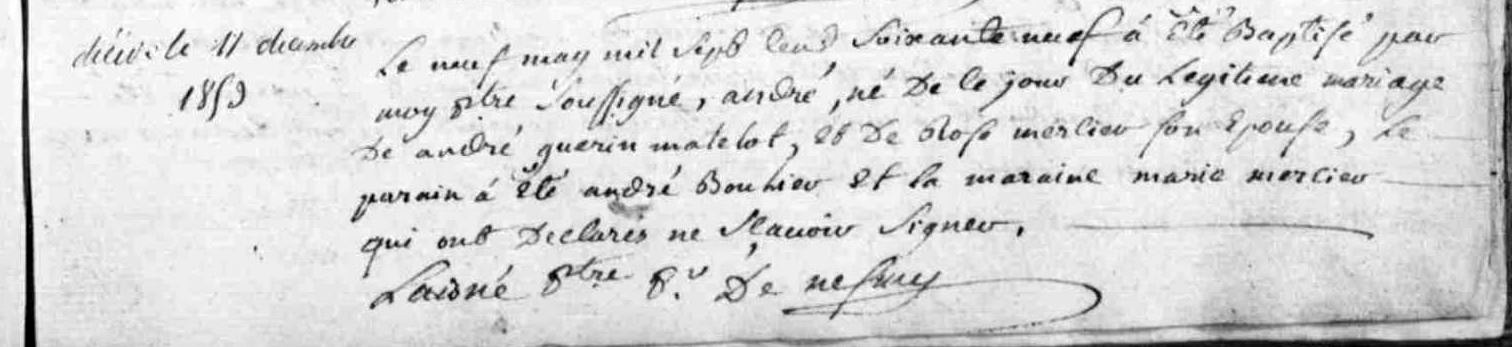 délivré le 11 decembre
1853
Le neuf may mil Sept Cent Soixante neuf á été Baptisé par
moy Ptre Soussigné, andré, né De ce jour Du Legitime mariage
De andré guerin matelot, et De Rose mercier son Epouse, Le
parain á été andré Bouhier et la maraine marie mercier
qui ont Declarés ne Sçauoir Signer.
Laisné Ptre P.r De nesmy